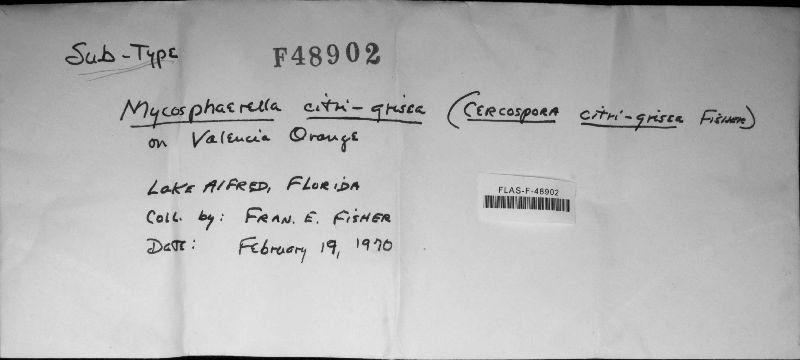 Sub-Type
F48902
Mycosphaerella citri-grisea (Cercospora citri-grisea Fisher)
on Valencia Orange
FLAS-F-48902
Lake Alfred, Florida
Coll. by: Fran. E. Fisher
Date: February 19, 1970